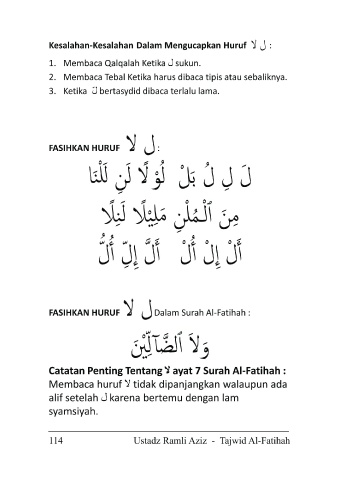 Kesalahan-Kesalahan Dalam Mengucapkan Huruf ل لا :
1. Membaca Qalqalah Ketika ل sukun.
2. Membaca Tebal Ketika harus dibaca tipis atau sebaliknya.
3. Ketika لّ bertasydid dibaca terlalu lama.
FASIHKAN HURUF ل لا :
لَ لِ لُ بَلْ لُوْ لًا لَنِ لَلْنَا
مِنَ ٱلْمُلْنِ مَلِيْلًا لَنِلًا
أَلْ إِلْ أُلْ أَلَّ إِلِّ أُلُّ
FASIHKAN HURUF ل لا Dalam Surah Al-Fatihah :
وَلاَ ٱلضَّآلِّيْنَ
Catatan Penting Tentang لا ayat 7 Surah Al-Fatihah :
Membaca huruf لا tidak dipanjangkan walaupun ada
alif setelah ل karena bertemu dengan lam
syamsiyah.
114 Ustadz Ramli Aziz - Tajwid Al-Fatihah